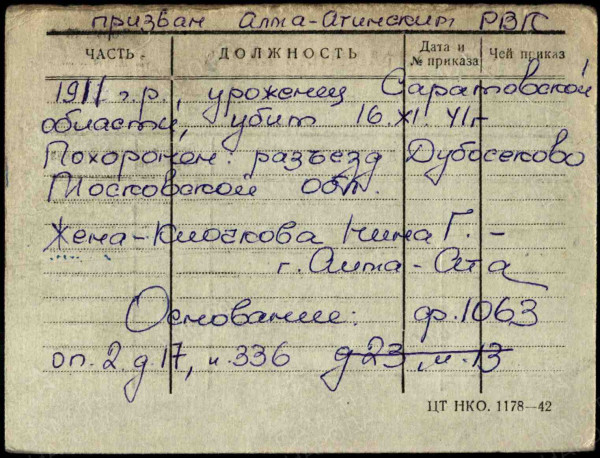 призван Алма-Атинским РВК
ЧАСТЬ ДОЛЖНОСТЬ Дата и № приказа Чей приказ
1911 г.р., уроженец Саратовской
области, убит 16.XI.41г
Похоронен: разъезд Дубосеково
Московской обл.
Жена-Клочкова Нина Г. –
г. Алма-Ата
Основание: ф.1063
оп.2.д.17, л.336 д 23, л.13
ЦТ НКО. 1178—42